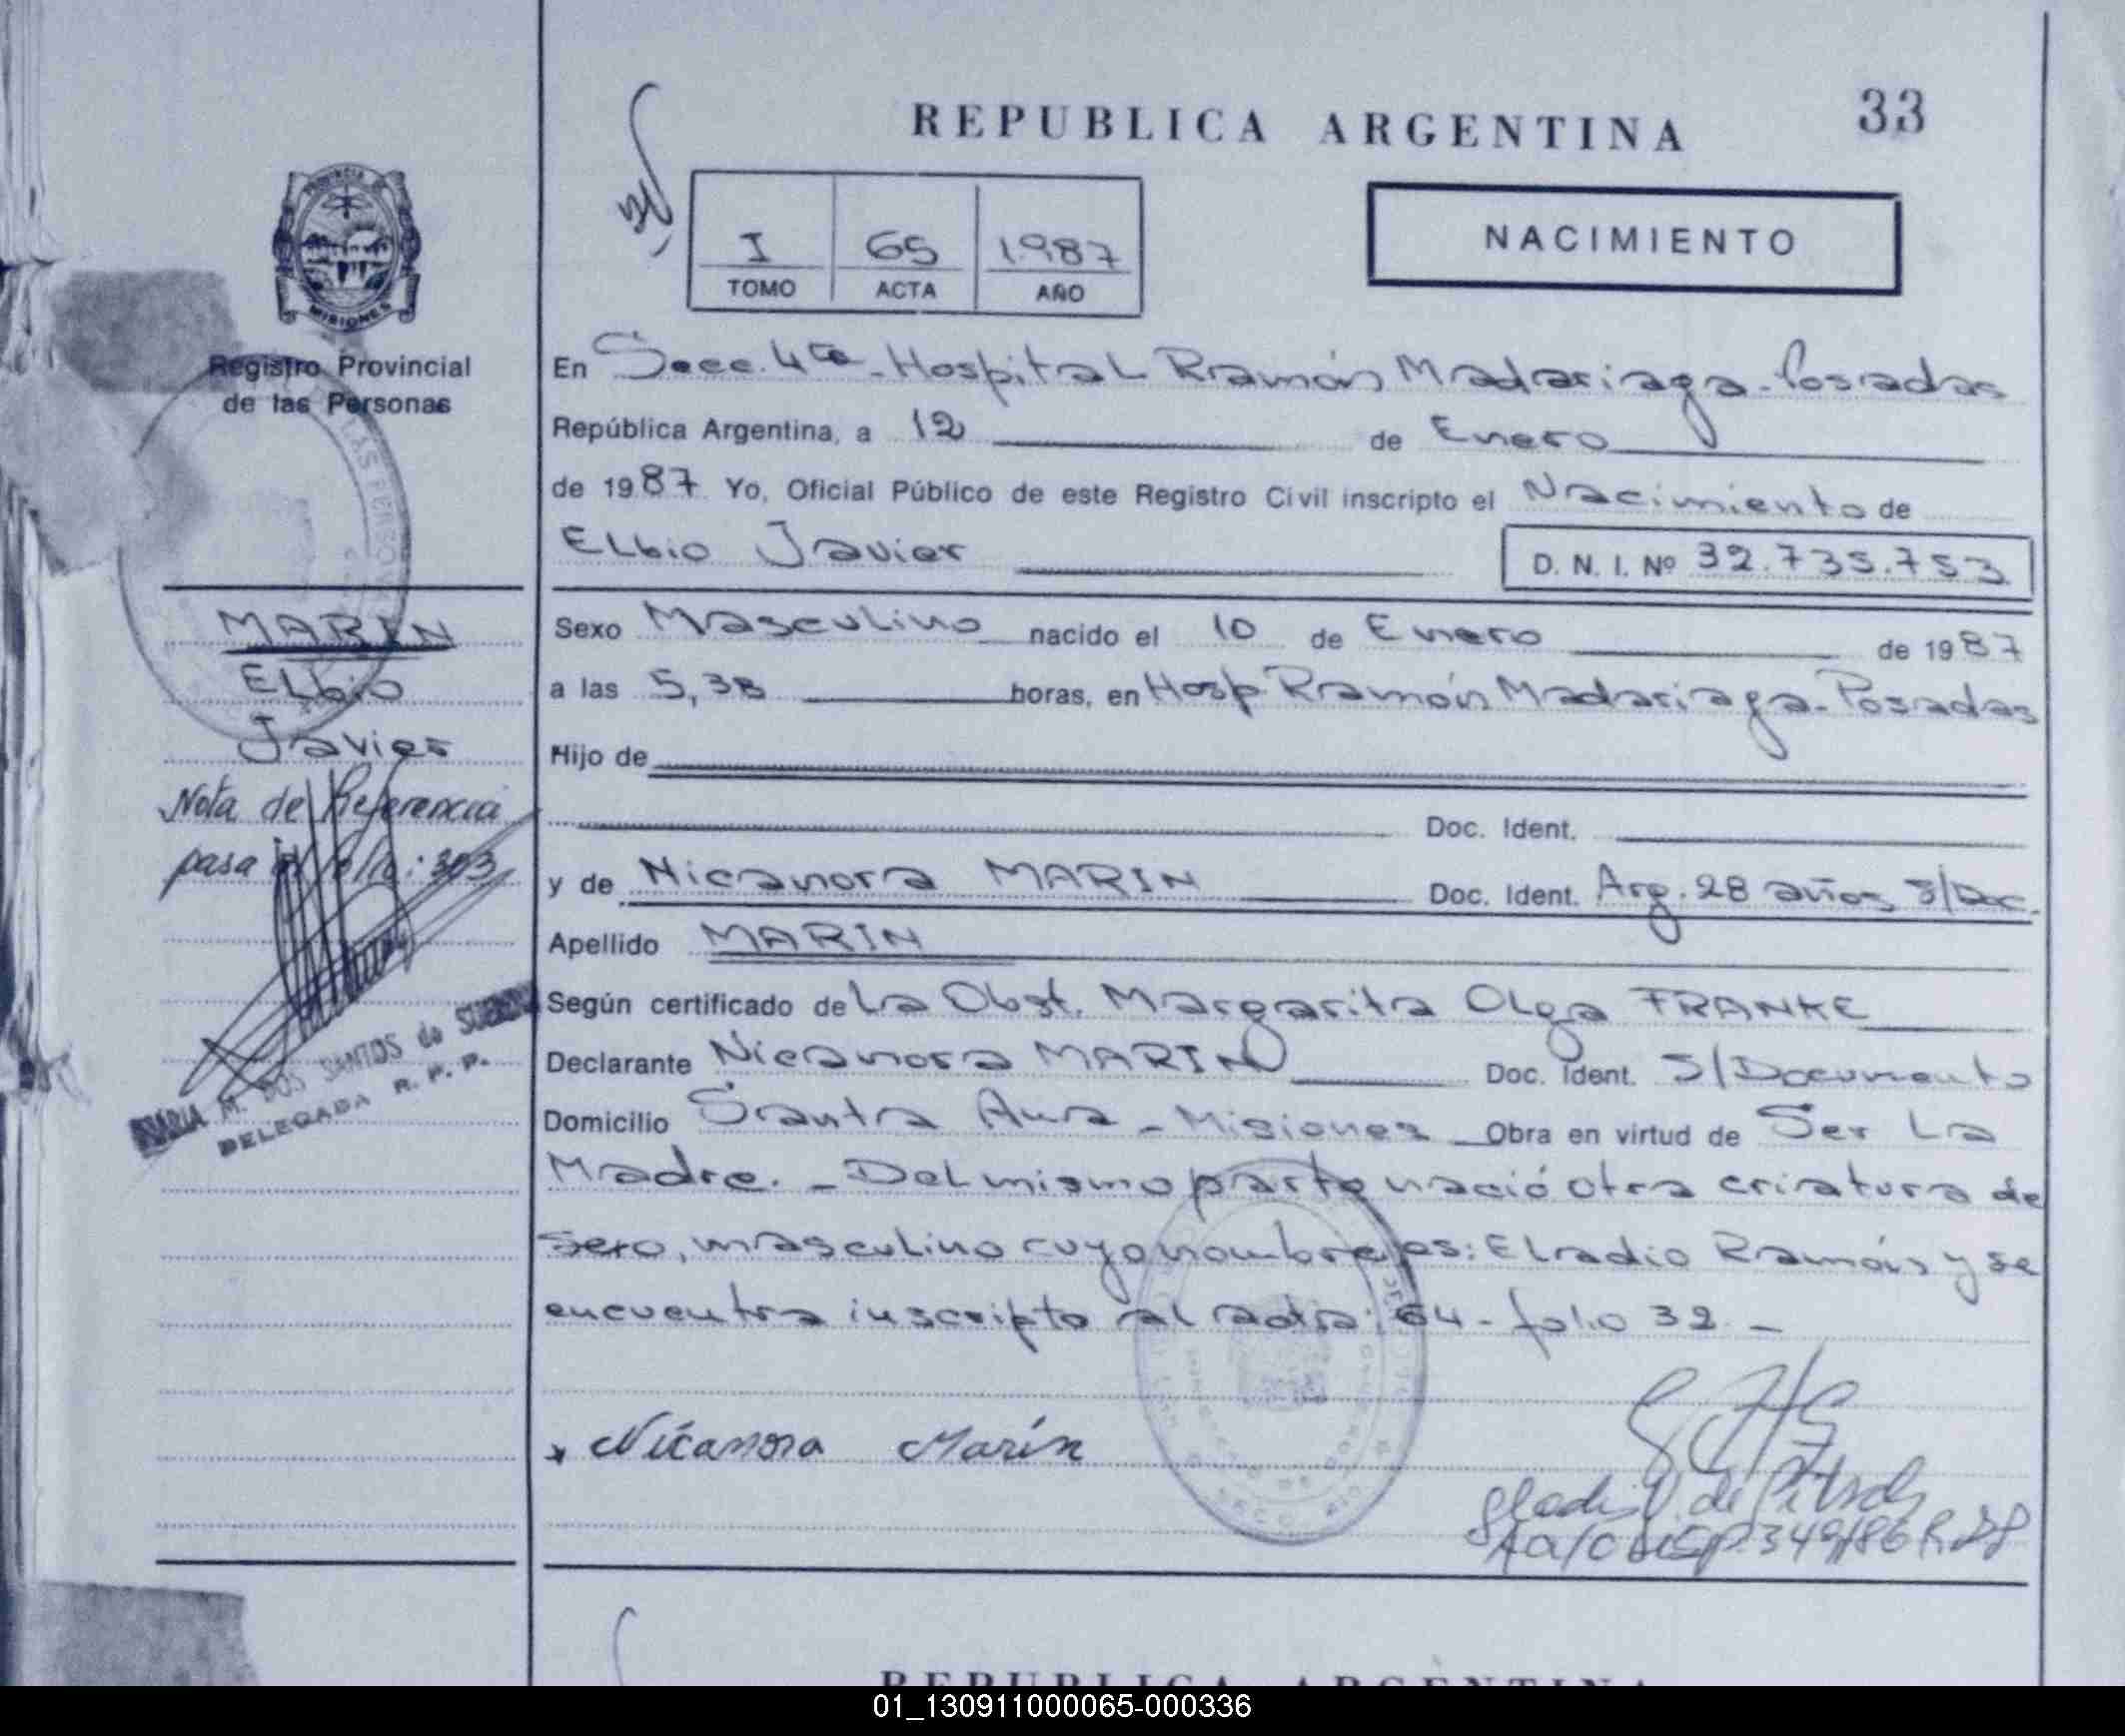 REPUBLICA ARGENTINA
33
PROVINCIA DE
MISIONES
I 65 1987
TOMO ACTA AÑO
NACIMIENTO
Registro Provincial
de las Personas
En Secc. 4ta - Hospital Ramón Madariaga - Posadas
República Argentina, a 12 de Enero
de 1987 Yo, Oficial Público de este Registro Civil inscripto el Nacimiento de
Elbio Javier D. N. I. Nº 32.735.753
MARIN
Elbio
Javier
Nota de Referencia
pasa al folio: 303
MARIA M. DOS SANTOS de
DELEGADA R. P. P.
Sexo Masculino nacido el 10 de Enero de 1987
a las 5,35 horas, en Hosp. Ramón Madariaga - Posadas
Hijo de
Doc. Ident.
y de Nicanora MARIN Doc. Ident. Arg. 28 años S/Doc.
Apellido MARIN
Según certificado de La Obst. Margarita Olga FRANKE
Declarante Nicanora MARIN Doc. Ident. S/Documento
Domicilio Santa Ana - Misiones Obra en virtud de Ser La
Madre. - Del mismo parto nació otra criatura de
sexo, masculino cuyo nombre es: Eladio Ramón y se
encuentra inscripto al acta: 64 - folio 32 -
x Nicanora Marín
349/86
REPUBLICA ARGENTINA
01_130911000065-000336